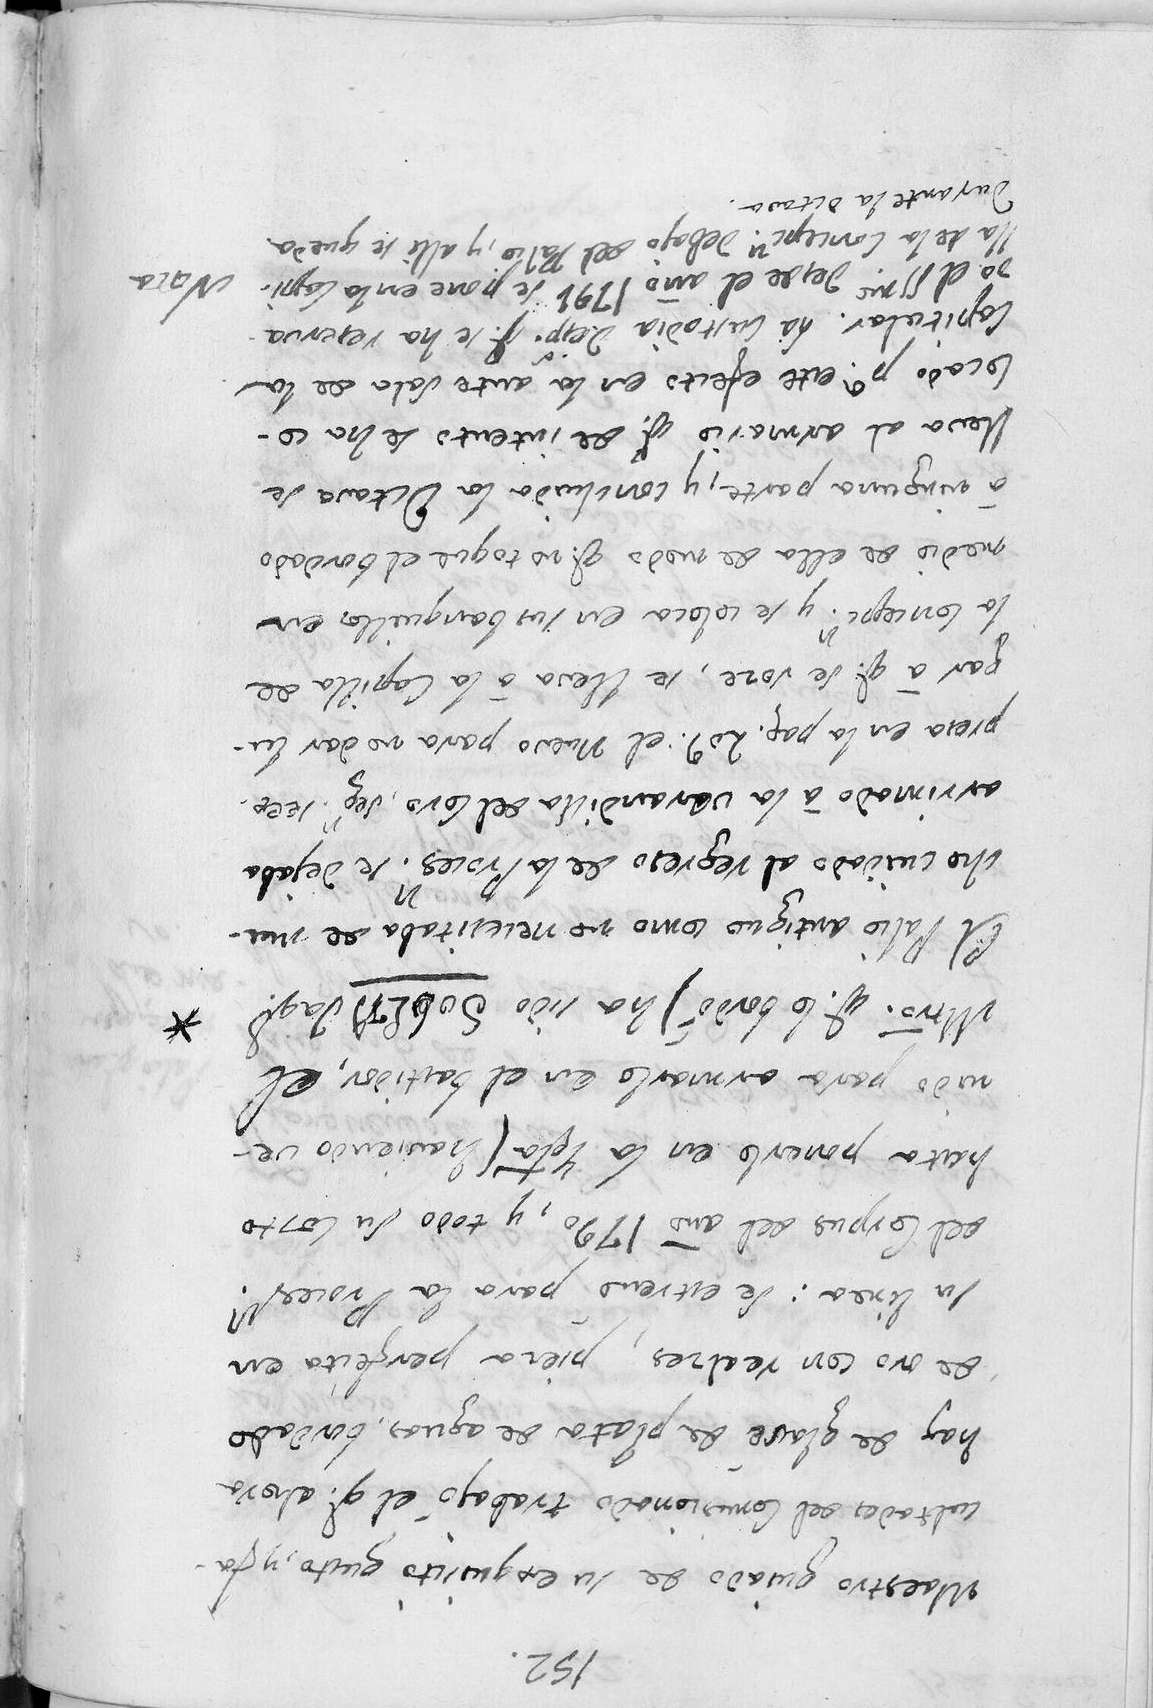 152.
Maestro guiado de su exquisito gusto, y fa-
cultades del Comisionado trabajó el q.e ahora
hay de glasé de plata de aguas, bordado
de oro con realzes, pieza perfecta en
su linea: se estrenó para la Proces.n
del Corpus del año 1790, y todo su costo
hasta ponerlo en la Ygla (haviendo ve-
nido para armarlo en el bastidor, el
Mtrō. q.e lo bordó) ha sido
*
El Palio antiguo como no necesitaba de mu-
cho cuidado al regreso de la Proces.n se dejaba
arrimado à la varandilla del Coro, seg.n se ex-
presa en la pag. 209: el nuevo para no dar lu-
gar à q.e se roze, se lleva à la Capilla de
la Concepc.n y se coloca en sus banquillos en
medio de ella de modo q.e no toque el bordado
à ninguna parte, y concluida la Octava se
lleva al armario q.e de intento se ha co-
locado p.a este efecto en la ante Sala de la
Capitular. La Custodia desp.s q.e se ha reserva-
do el Smo. desde el año 1791 se pone en la Capi-
Nota
lla de la Concepc.n debajo del Palio, y alli se queda
durante la octava.